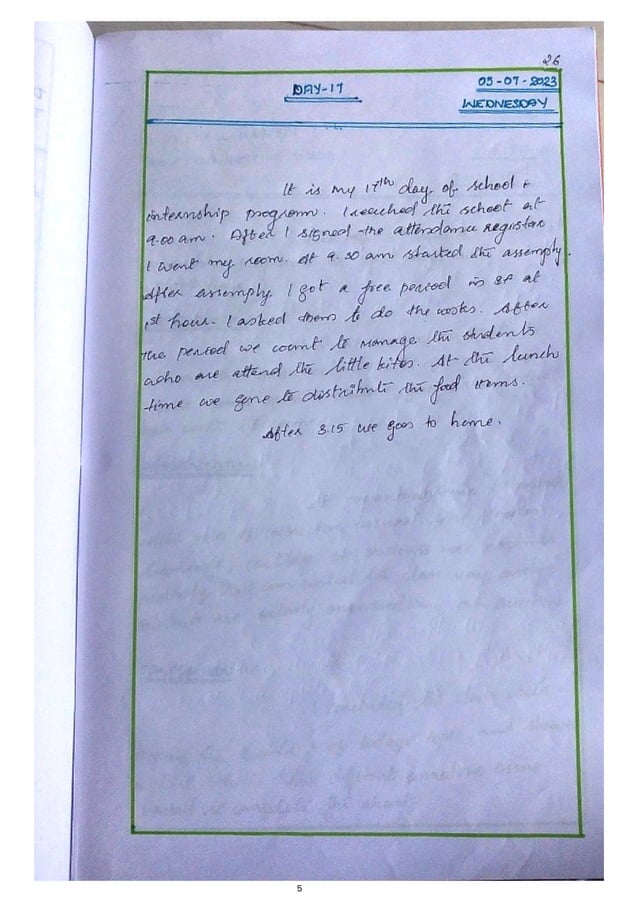 26
DAY-17
05-07-2023
WEDNESDAY
It is my 17th day of school
internship program. I reached the school at
9.00 am. After I signed the attendance register
I went my room. At 9.30 am started the assemply.
After assemply I got a free period in 8F at
1st hour. I asked them to do the works. After
the period we count to manage the students
who are attend the little kites. At the lunch
time we gone to distribute the food items.
After 3.15 we goes to home.
5